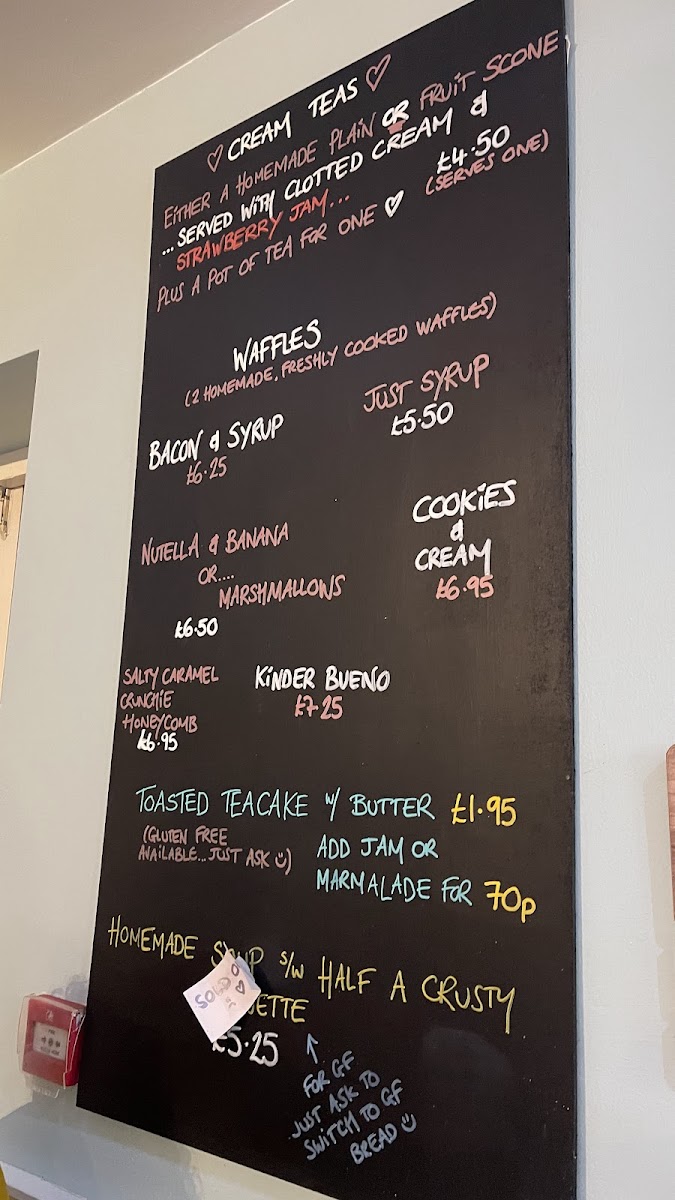 ♡ CREAM TEAS ♡
EITHER A HOMEMADE PLAIN OR FRUIT SCONE
...SERVED WITH CLOTTED CREAM &
STRAWBERRY JAM...
£4.50
(SERVES ONE)
PLUS A POT OF TEA FOR ONE ♡
WAFFLES
(2 HOMEMADE, FRESHLY COOKED WAFFLES)
BACON & SYRUP
£6.25
JUST SYRUP
£5.50
NUTELLA & BANANA
OR....
MARSHMALLOWS
£6.50
COOKIES
&
CREAM
£6.95
SALTY CARAMEL
CRUNCHIE
HONEYCOMB
£6.95
KINDER BUENO
£7.25
TOASTED TEACAKE W/ BUTTER £1.95
(GLUTEN FREE
AVAILABLE...JUST ASK ☺)
ADD JAM OR
MARMALADE FOR 70p
HOMEMADE SOUP S/W HALF A CRUSTY
ETTE
£5.25
SOLD
↑
FOR GF
JUST ASK TO
SWITCH TO GF
BREAD ☺